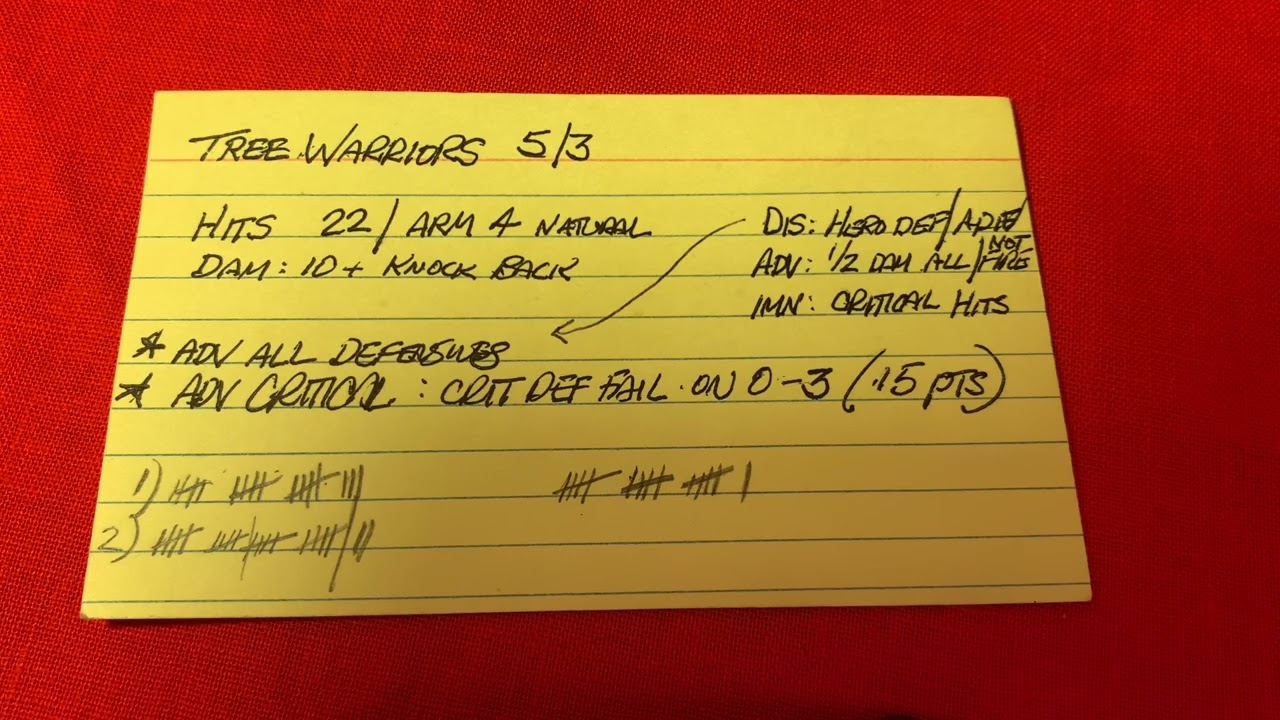 TREE WARRIORS 5/3
HITS 22/ ARM 4 NATURAL
DAM: 10 + KNOCK BACK
DIS: HERO DEF/
ADV: 1/2 DAM ALL/NOT FIRE
IMN: CRITICAL HITS
* ADV ALL DEFENSIVES
* ADV CRITICAL: CRIT DEF FAIL ON 0-3 (15 PTS)
1)
2)